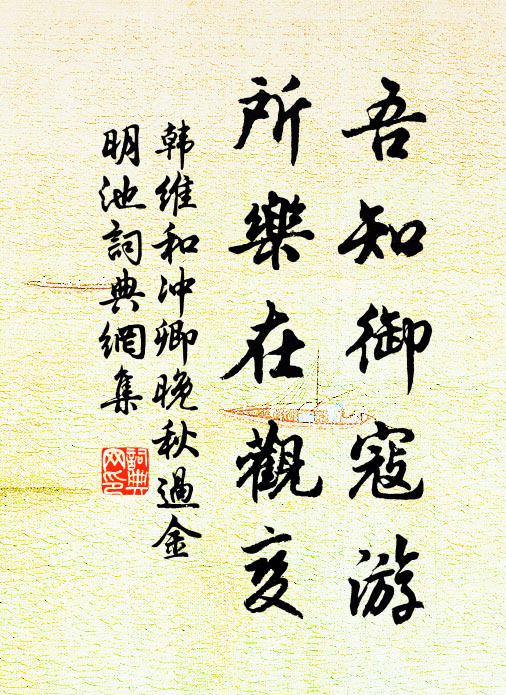 吾知御寇游
所樂在觀变
韩维和冲卿晚秋過金
明池詞典網集
詞典
网印